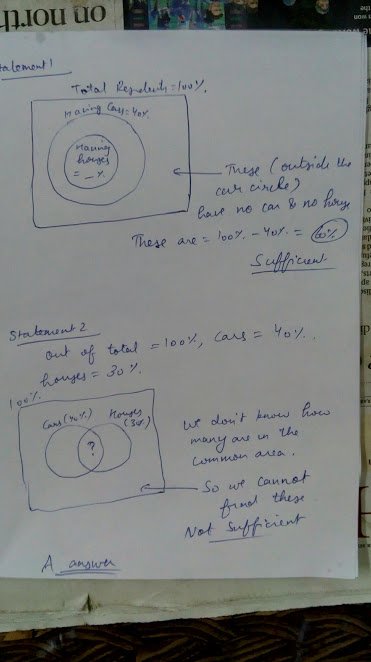 on north
Statement 1
Total Residents = 100%.
Having Cars = 40%.
Having
houses
= _ %
These (outside the
car circle)
have no car & no house
These are = 100% - 40% = 60%
Sufficient
Statement 2
Out of total = 100%, Cars = 40%.
houses = 30%
100%.
Cars (40%)
Houses
(30%)
?
We don't know how
many are in the
common area.
So we cannot
find these
Not Sufficient
A answer